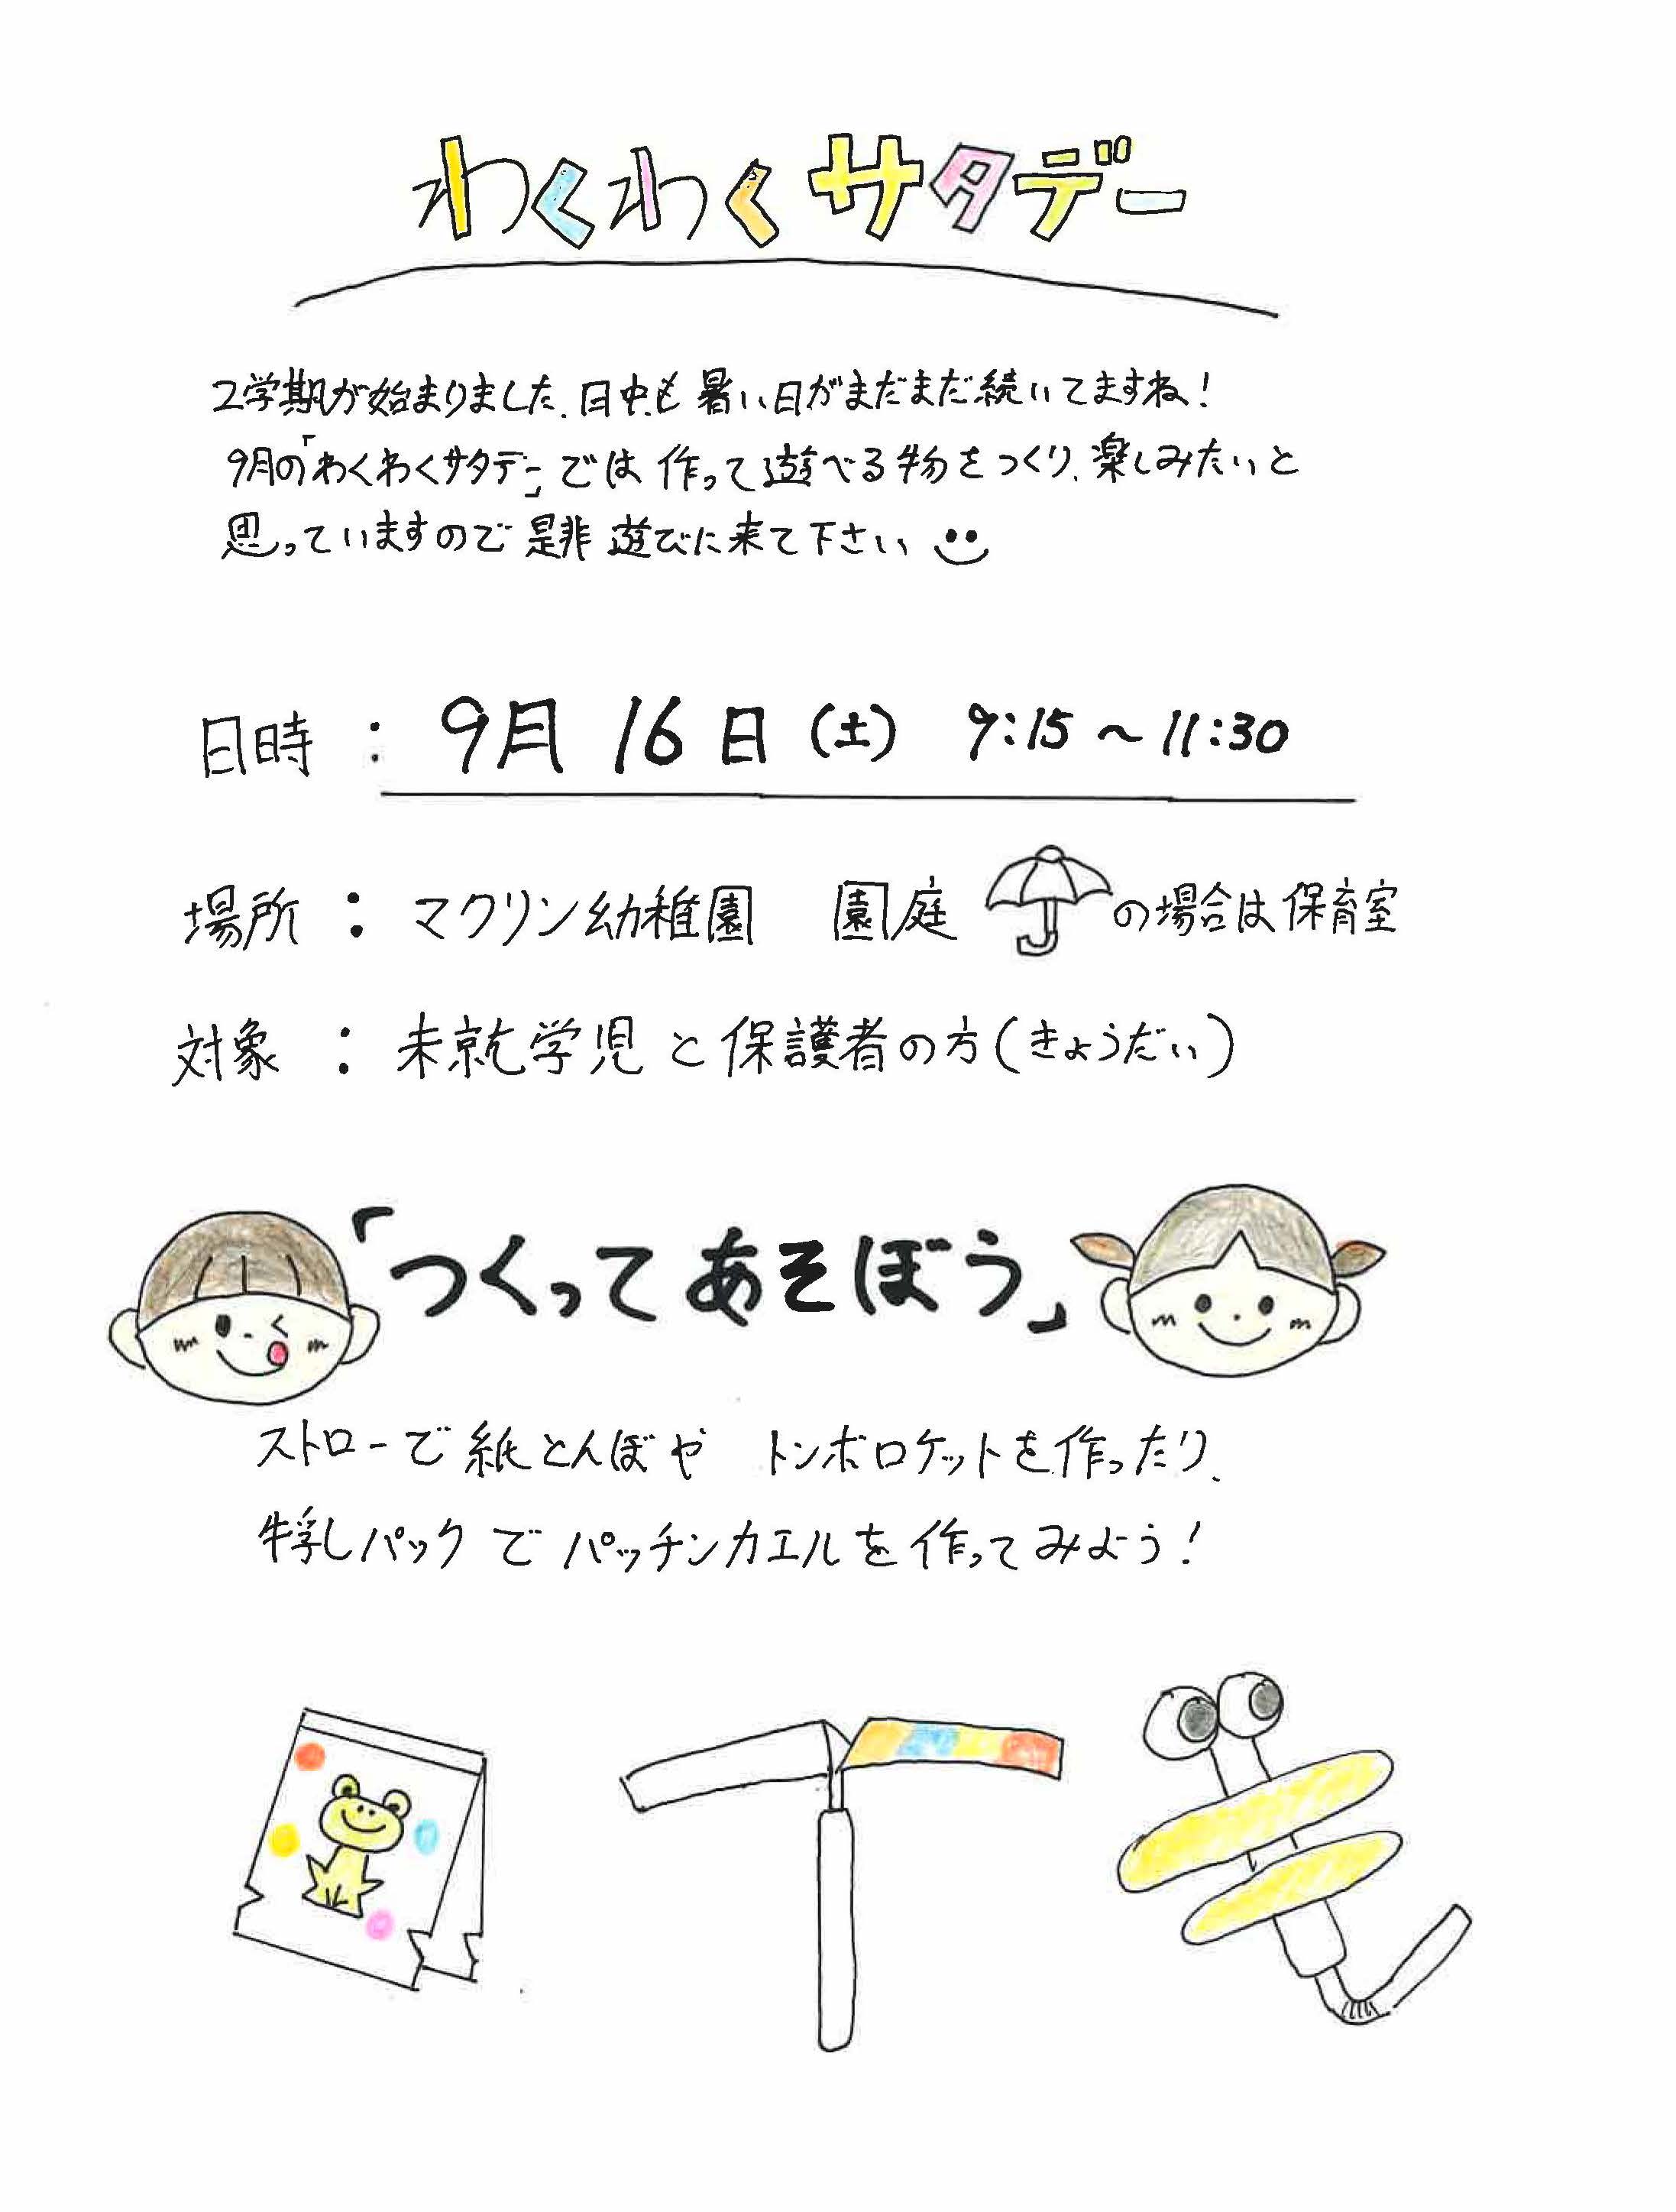 わくわくサタデー
2学期が始まりました。日中も暑い日がまだまだ続いてますね!
9月の「わくわくサタデー」では作って遊べる物をつくり、楽しみたいと
思っていますので是非遊びに来て下さい
日時 : 9月16日(土) 9:15～11:30
場所 : マクリン幼稚園 園庭 の場合は保育室
対象 : 未就学児と保護者の方(きょうだい)
「つくってあそぼう」
ストローで紙とんぼや トンボロケットを作ったり、
牛乳パックでパッチンカエルを作ってみよう!